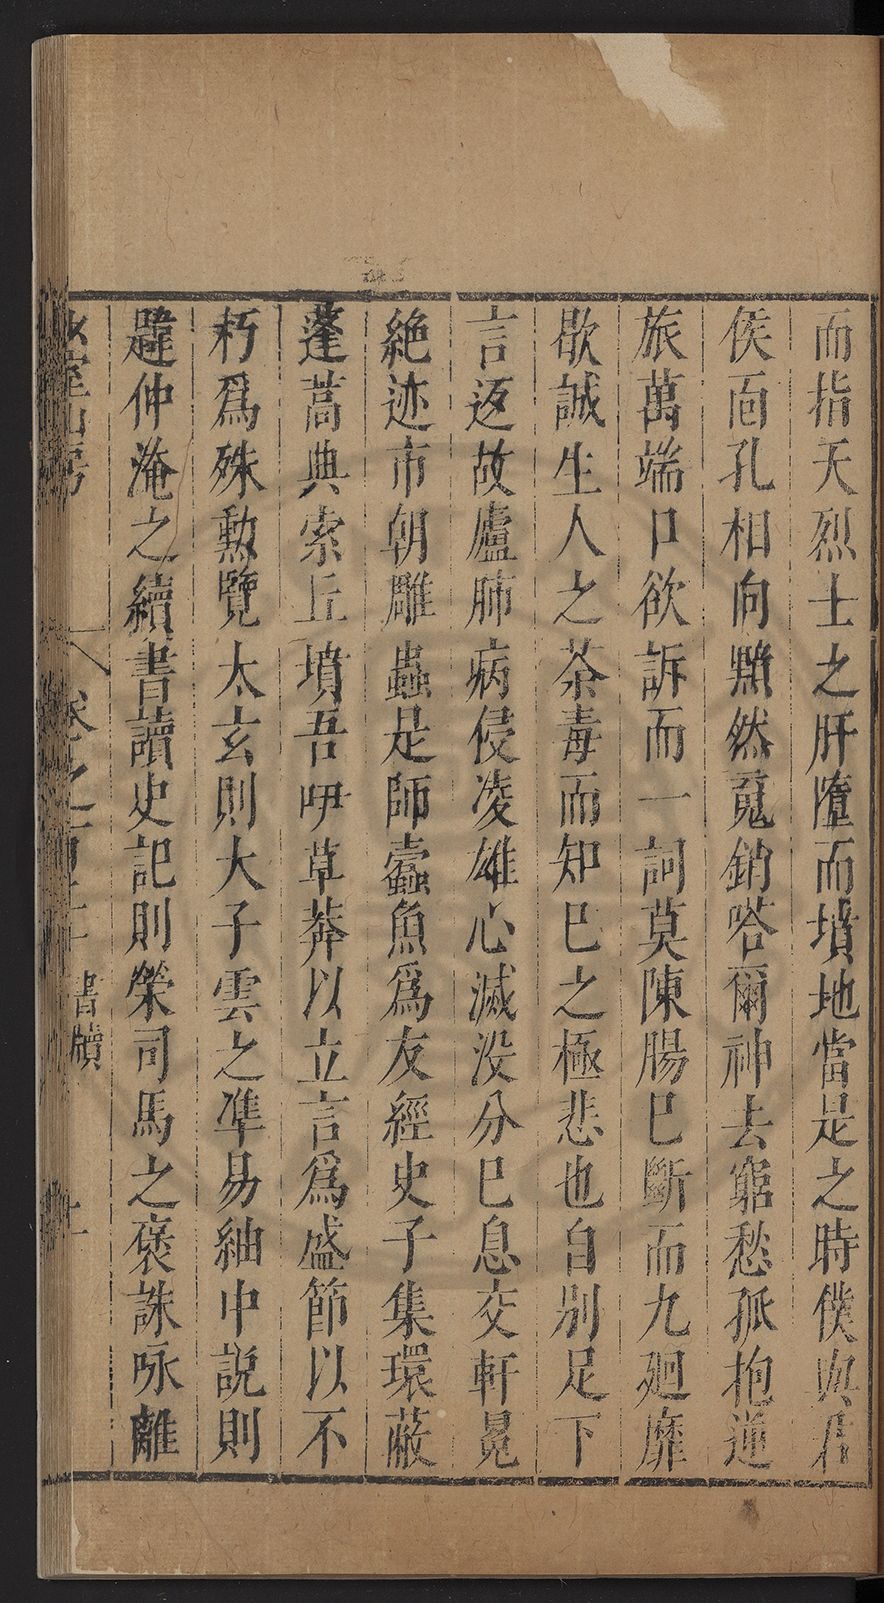 而指天烈士之肝墮而墳地當是之時僕與君
侯面孔相向黯然䰟銷嗒爾神去窮愁孤抱逆
旅萬端口欲訴而一詞莫陳腸巳斷而九廻靡
歇誠生人之荼毒而知巳之極悲也自別足下
言返故廬肺病侵凌雄心滅没分巳息交軒冕
絶迹市朝雕蟲是師蠹魚爲友經史子集環蔽
蓬蒿典索丘墳吾吚草莽以立言爲盛節以不
朽爲殊勲覽太玄則大子雲之準易紬中說則
韙仲淹之續書讀史記則榮司馬之褒誅咏離
室山房
卷之 書牘